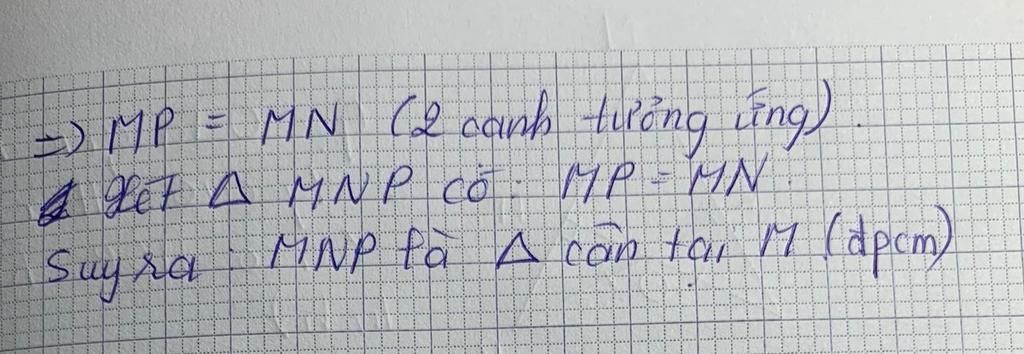 => MP = MN (2 cạnh tương ứng).
Xét Δ MNP có: MP = MN.
Suy ra: MNP là Δ cân tại M (đpcm)